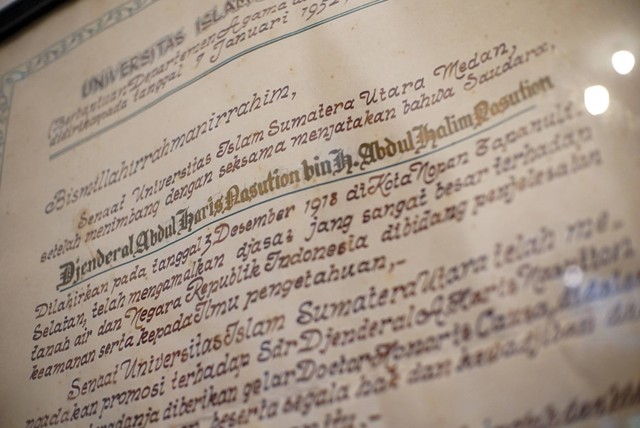 UNIVERSITAS ISLAM
Berbantuan Departemen Agama
didirikan pada tanggal 7 Januari 1952,
Bismillahirrahmanirrahim,
Senaat Universitas Islam Sumatera Utara Medan,
setelah menimbang dengan seksama menjatakan bahwa Saudara,
Djenderal Abdul Haris Nasution bin H. Abdul Halim Nasution
Dilahirkan pada tanggal 3 Desember 1918 di Kota Nopan Tapanuli
Selatan, telah mengamalkan djasa2 jang sangat besar terhadap
tanah air dan Negara Republik Indonesia dibidang penjelesaian
keamanan serta kepada Ilmu pengetahuan,-
Senaat Universitas Islam Sumatera Utara telah me-
ngadakan promosi terhadap Sdr Djenderal A. Haris Nasution
diberikan gelar Doctor Honoris Causa,
beserta segala hak dan kewadjiban